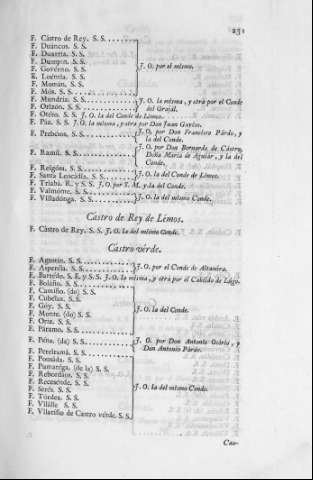 231
F. Castro de Rey. S. S.
F. Duancos. S. S.
F. Duarria. S. S.
F. Dumpin. S. S.
F. Governo. S. S.
F. Loentia. S. S.
F. Momán. S. S.
F. Mós. S. S.
J. O. por el mismo.
F. Mundriz. S. S.
F. Orizón. S. S.
J. O. la misma, y otra por el Conde
del Grajál.
F. Otéro. S. S. J. O. la del Conde de Lémos.
F. Páz. S. S. J. O. la misma, y otra por Don Juan
F. Prebéios. S. S.
J. O. por Don Francisco Párdo, y
la del Conde.
F. Ramíl. S. S.
J. O. por Don Bernardo de Cástro,
Doña María de Aguiár, y la del
Conde.
F. Reigósa. S. S.
F. Santa Leocádia. S. S.
J. O. la del Conde de Lémos.
F. Triabá. R. y S. S. J. O. por S. M. y la del Conde.
F. Valmónte. S. S.
F. Villadónga. S. S.
J. O. la del mismo Conde.
Castro de Rey de Lémos.
F. Castro de Rey. S. S. J. O. la del mismo Conde.
Castro-vérde.
F. Agustín. S. S.
F. Asperéla. S. S.
J. O. por el Conde de Altamíra.
F. Barréio. S. E. y S. S. J. O. la misma, y otra por el Cabildo de Lúgo.
F. Bolaño. S. S.
F. Camíño. (do) S. S.
F. Cubelas. S. S.
F. Góy. S. S.
F. Monte. (do) S. S.
F. Oriz. S. S.
F. Páramo. S. S.
J. O. la del Conde.
F. Péna. (da) S. S.
J. O. por Don Antonio Osório, y
Don Antonio Párdo.
F. Pereiramá. S. S.
F. Pousáda. S. S.
F. Pumaréga. (de la) S. S.
F. Rebordáos. S. S.
F. Recesende. S. S.
F. Serés. S. S.
F. Tórdea. S. S.
F. Vilálle S. S.
F. Vilariño de Castro vérde. S. S.
J. O. la del mismo Conde.
Cau-